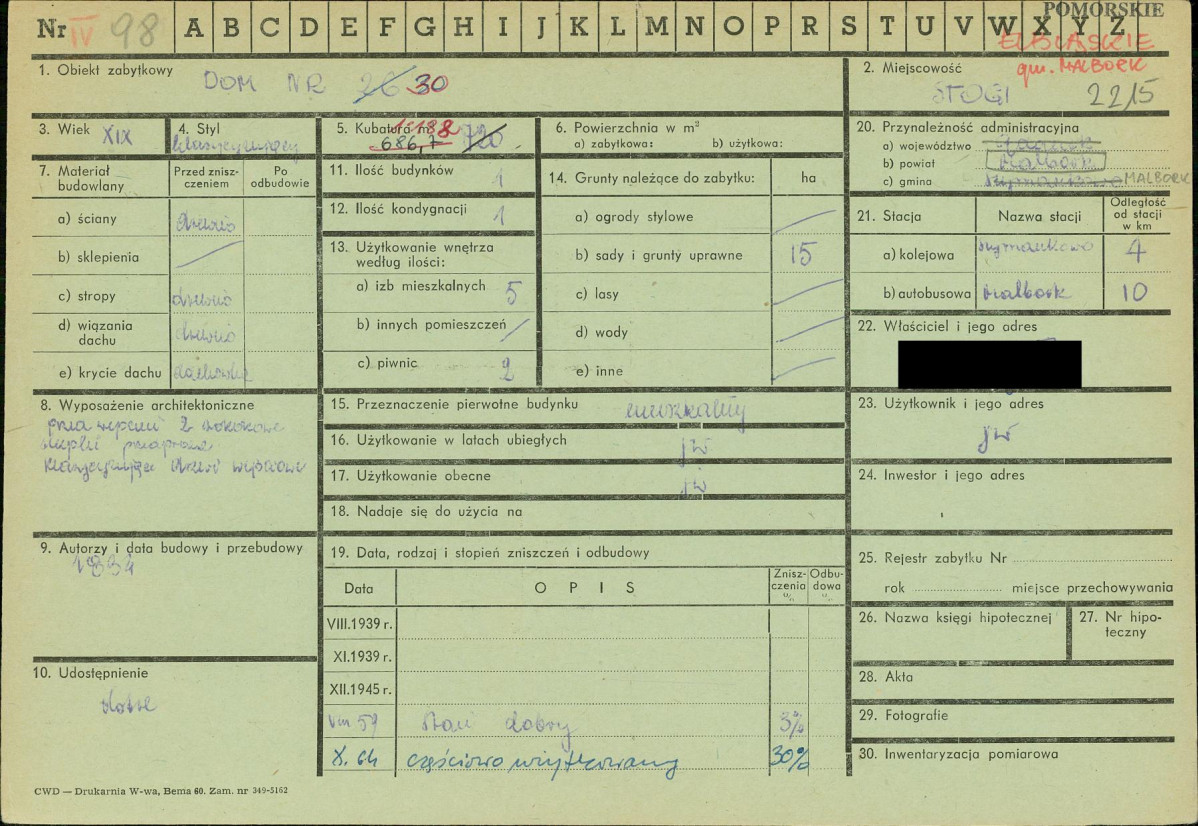 Nr IV 98 A B C D E F G H I J K L M N O P R S T U V W X Y Z
POMORSKIE
ELBLĄSKIE
gm. MALBORK
1. Obiekt zabytkowy DOM NR 26 30
2. Miejscowość
STOGI 2215
3. Wiek XIX
4. Styl
klasycyzujący
5. Kubatura m³ 1188
686,7 720
6. Powierzchnia w m²
a) zabytkowa: b) użytkowa:
7. Materiał budowlany
Przed zniszczeniem
Po odbudowie
a) ściany drewno
b) sklepienia
c) stropy drewno
d) wiązania dachu drewno
e) krycie dachu dachówka
8. Wyposażenie architektoniczne
klasycyzujące drzwi wejściowe
9. Autorzy i data budowy i przebudowy
1834
10. Udostępnienie
dobre
11. Ilość budynków 1
12. Ilość kondygnacji 1
13. Użytkowanie wnętrza
według ilości:
a) izb mieszkalnych 5
b) innych pomieszczeń
c) piwnic 2
14. Grunty należące do zabytku: ha
a) ogrody stylowe
b) sady i grunty uprawne 15
c) lasy
d) wody
e) inne
15. Przeznaczenie pierwotne budynku mieszkalny
16. Użytkowanie w latach ubiegłych jw
17. Użytkowanie obecne jw
18. Nadaje się do użycia na
19. Data, rodzaj i stopień zniszczeń i odbudowy
Data OPIS Zniszczenia % Odbudowa %
VIII.1939 r.
XI.1939 r.
XII.1945 r.
VIII 59 Stan dobry 3%
X. 64 częściowo użytkowany 30%
20. Przynależność administracyjna
a) województwo Gdańsk
b) powiat Malbork
c) gmina Szymankowo MALBORK
21. Stacja Nazwa stacji Odległość od stacji w km
a) kolejowa Szymankowo 4
b) autobusowa Malbork 10
22. Właściciel i jego adres
23. Użytkownik i jego adres
jw
24. Inwestor i jego adres
25. Rejestr zabytku Nr
rok miejsce przechowywania
26. Nazwa księgi hipotecznej
27. Nr hipoteczny
28. Akta
29. Fotografie
30. Inwentaryzacja pomiarowa
CWD — Drukarnia W-wa, Bema 60. Zam. nr 349-5162